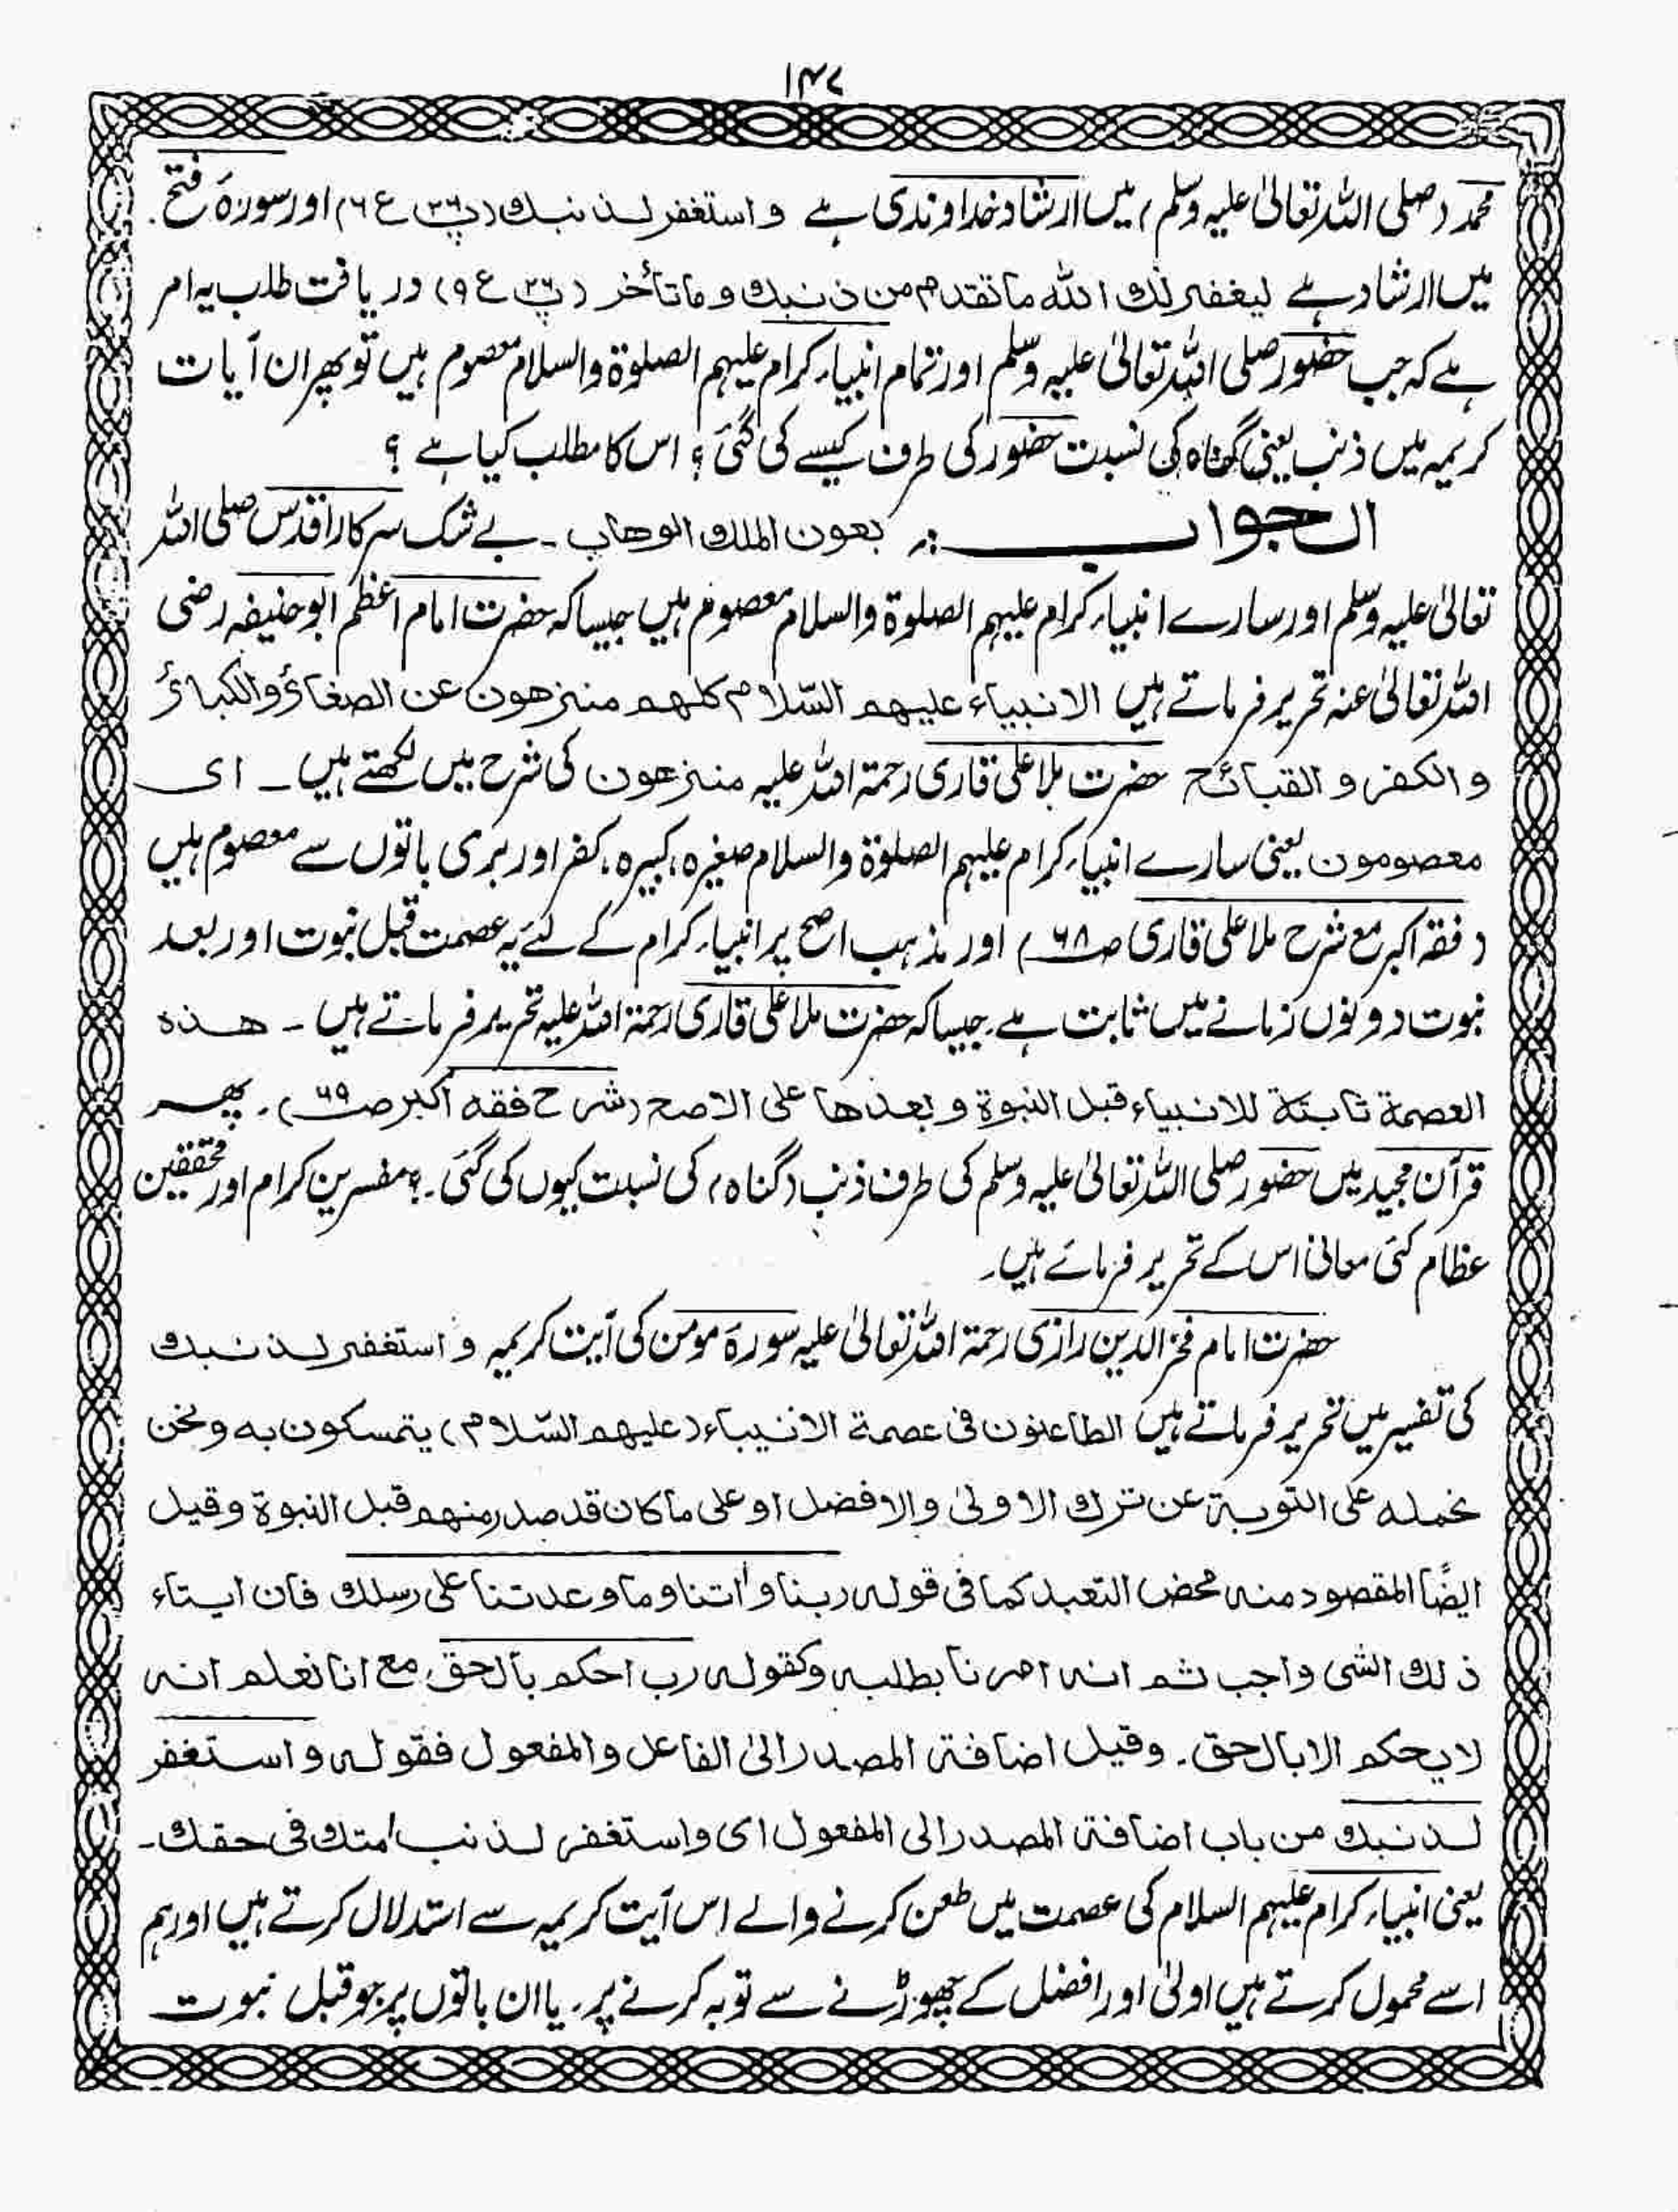 ۱۴۷
محمد (صلی اللہ تعالیٰ علیہ وسلم) میں ارشاد خداوندی ہے واستغفر لذنبك (پ۲۶ ع۶) اور سورۂ فتح
میں ارشاد ہے لیغفر لك اللّٰه ماتقدم من ذنبك وماتأخر (پ۲۶ ع۹) دریافت طلب یہ امر
ہے کہ جب حضور صلی اللہ تعالیٰ علیہ وسلم اور تمام انبیاء کرام علیہم الصلوٰۃ والسلام معصوم ہیں تو پھر ان آیات
کریمہ میں ذنب یعنی گناہ کی نسبت حضور کی طرف کیسے کی گئی؟ اس کا مطلب کیا ہے ؟
الجواب :۔ بعون الملك الوهاب ۔ بے شک سرکار اقدس صلی اللہ
تعالیٰ علیہ وسلم اور سارے انبیاء کرام علیہم الصلوٰۃ والسلام معصوم ہیں جیسا کہ حضرت امام اعظم ابوحنیفہ رضی
اللہ تعالیٰ عنہ تحریر فرماتے ہیں الانبیاء علیهم السّلام کلهم منزهون عن الصغائر والکبائر
والکفر والقبائح حضرت ملا علی قاری رحمۃ اللہ علیہ منزهون کی شرح میں لکھتے ہیں ۔ ای
معصومون یعنی سارے انبیاء کرام علیہم الصلوٰۃ والسلام صغیرہ، کبیرہ، کفر اور بری باتوں سے معصوم ہیں
(فقہ اکبر مع شرح ملا علی قاری ص۶۸) اور مذہب اصح پر انبیاء کرام کے لئے یہ عصمت قبل نبوت اور بعد
نبوت دونوں زمانے میں ثابت ہے۔ جیسا کہ حضرت ملا علی قاری رحمۃ اللہ علیہ تحریر فرماتے ہیں ۔ هذه
العصمة ثابتة للانبیاء قبل النبوة وبعدها علی الاصح (شرح فقه اکبر ص۶۹)۔ پھر
قرآن مجید میں حضور صلی اللہ تعالیٰ علیہ وسلم کی طرف ذنب (گناہ) کی نسبت کیوں کی گئی۔؟ مفسرین کرام اور محققین
عظام کئی معانی اس کے تحریر فرمائے ہیں۔
حضرت امام فخر الدین رازی رحمۃ اللہ تعالیٰ علیہ سورۂ مومن کی آیت کریمہ واستغفر لذنبك
کی تفسیر میں تحریر فرماتے ہیں الطاعنون فی عصمة الانبیاء (علیهم السّلام) یتمسکون به ونحن
نحمله علی التوبة عن ترك الاولیٰ والافضل او علی ماکان قد صدر منهم قبل النبوة وقیل
ایضًا المقصود منه محض التعبد کما فی قوله ربنا واٰتنا وماوعدتنا علی رسلك فان ایتاء
ذلك الشی واجب ثم انه امرنا بطلبه وکقوله رب احکم بالحق مع انا نعلم انه
لا یحکم الا بالحق۔ وقیل اضافة المصدر الی الفاعل والمفعول فقوله واستغفر
لذنبك من باب اضافة المصدر الی المفعول ای واستغفر لذنب امتك فی حقك۔
یعنی انبیاء کرام علیہم السلام کی عصمت میں طعن کرنے والے اس آیت کریمہ سے استدلال کرتے ہیں اور ہم
اسے محمول کرتے ہیں اولیٰ اور افضل کے چھوڑنے سے توبہ کرنے پر۔ یا ان باتوں پر جو قبل نبوت